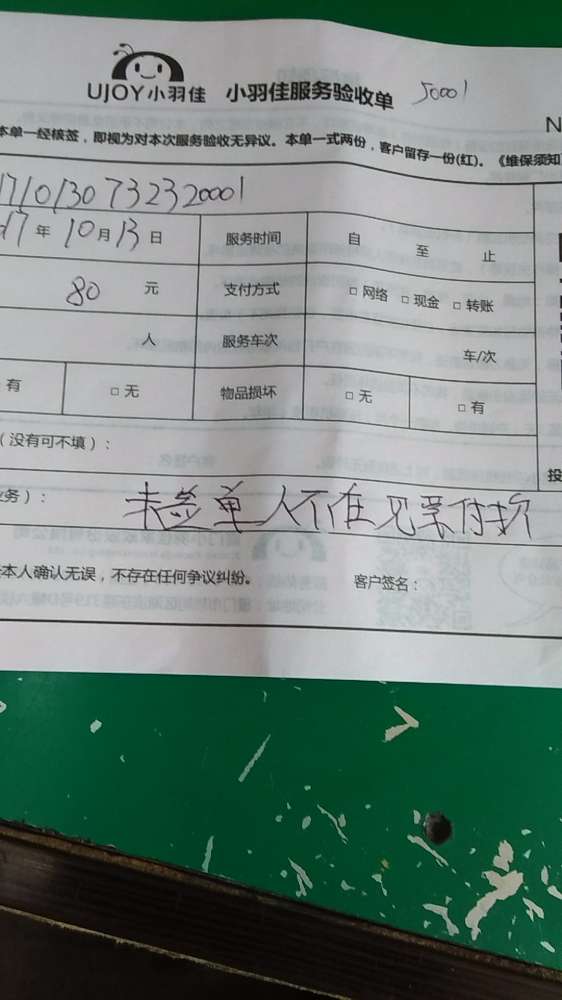 UJOY小羽佳 小羽佳服务验收单 50001
N
本单一经核签，即视为对本次服务验收无异议。本单一式两份，客户留存一份(红)。《维保须知
1710130732320001
17年10月13日 服务时间 自 至 止
80 元 支付方式 □网络 □现金 □转账
人 服务车次 车/次
有 □无 物品损坏 □无 □有
（没有可不填）： 投
业务）： 未签单人不在见
本人确认无误，不存在任何争议纠纷。 客户签名：